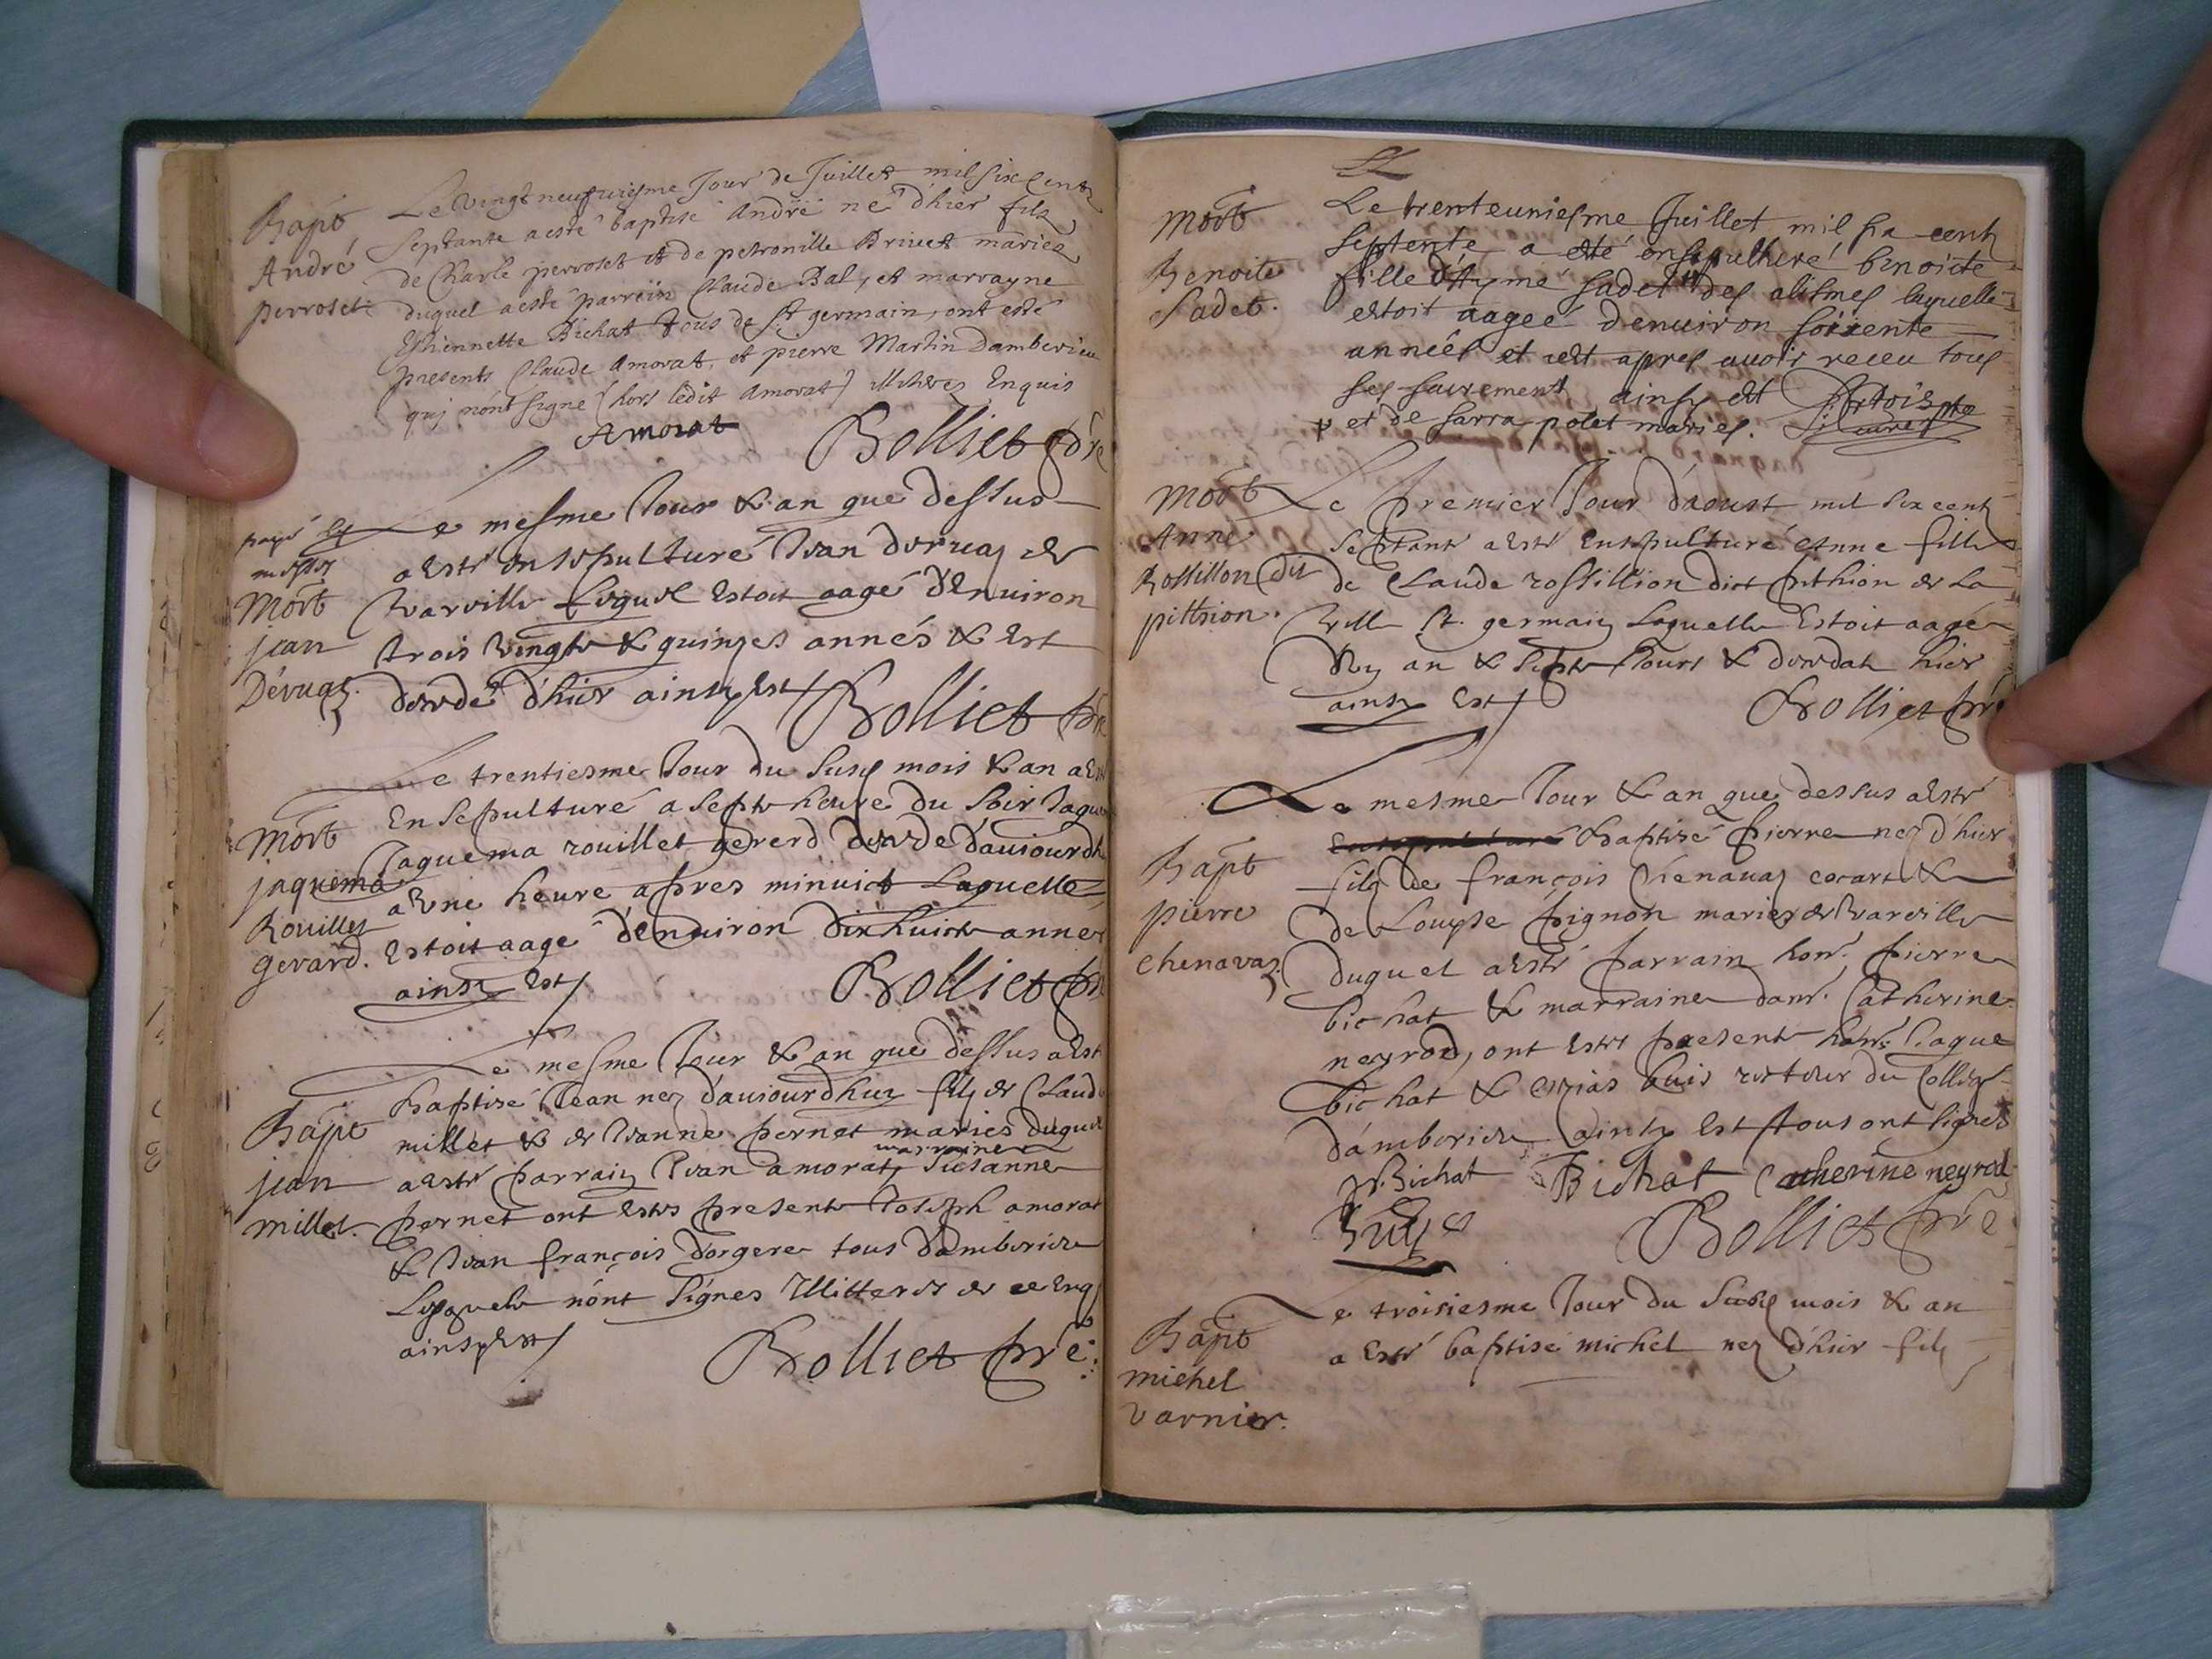 Bapt
André
perroset
Le vingt neufuiesme Jour de Juillet mil six Cent
septante a esté baptisé André né d'hier fils
de Charle perroset et de petronille Brinet mariez
duquel a esté parrein Claude Bal, et marrayne
Esthiennette Bichat tous de St germain, ont esté
presents Claude Amorat, et pierre Martin Damberieu
quj n'ont signé (hors ledit Amorat) Illiterez Enquis
Amorat Bolliet pbre
Mort
jean
Déruaz.
Le mesme Jour & an que dessus
a Esté ensepulturé Jean deruaz de
Vareille Lequel Estoit aagé d'Enuiron
trois vingts & quinzes annés & Est
decedé d'hier ainsy Est Bolliet pbre
Mort
jaquema
Rouillet
gerard.
Le trentiesme Jour du susd mois & an a Esté
Ensepulturé a septe heure du soir
Jaquema rouillet gererd decedé d'auiourdh
a Vne heure apres minuict Laquelle
Estoit aagé d'enuiron dixhuicte annes
ainsy Est Bolliet pbre
Bapt
jean
millet.
Le mesme Jour & an que dessus a Esté
Baptisé Jean nez d'auiourdhuy filz de Claude
millet & de Jeanne pernet mariés duquel
a esté parrain Jean amorat, marraine Susanne
pernet ont Estes presents Joseph amorat
& Jean françois dorgere tous d'amberieu
Lesquels n'ont signes Illitterés de ce Enq
ainsy Est Bolliet pbre
Mort
Benoite
Sadet.
Le trenteuniesme Juillet mil six cent
septente a esté ensepulturé benoicte
fille d'Aymé sadet # des alismes laquelle
estoit aageé d'enuiron soixente
annéés et est apres auoir receu tous
ses sacrements ainsy est
# et de sarra polet maries. curé
Mort
Anne
Rossillon dit
pithion.
Le premier Jour d'aoust mil six cent
septante a Esté Ensepulturé Anne fille
de Claude rossillion dict pithion de La
Ville St. germain Laquelle Estoit aagé
d'Vn an & septe Jours & decedat hier
ainsy Est Bolliet pbre
Bapt
pierre
chenavaz.
Le mesme Jour & an que dessus a Esté
Ensepulturé Baptisé pierre nez d'hier
filz de françois Chenauaz cocart &
de Louyse pignon mariez de Vareille
duquel a Esté parrain hon. pierre
bichat & marraine dam. Catherine
neyrod, ont Estes present hon. Jaque
bichat & buis recteur du College
d'amberieu ainsy Est tous ont signes
Bichat Bichat Catherine neyrod
Bolliet pbre
Bapt
michel
varnier.
Le troisiesme Jour du susd mois & an
a Esté baptisé michel nez d'hier filz